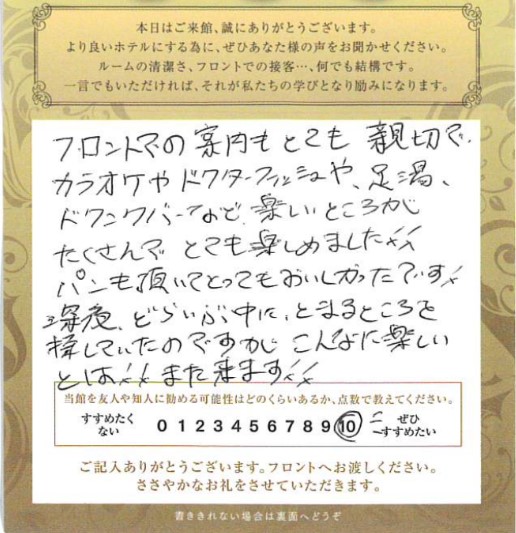 本日はご来館、誠にありがとうございます。
より良いホテルにする為に、ぜひあなた様の声をお聞かせください。
ルームの清潔さ、フロントでの接客…、何でも結構です。
一言でもいただければ、それが私たちの学びとなり励みになります。
フロントマの案内もとても親切で、
カラオケやドクターフィッシュや、足湯、
ドリンクバーなど、楽しいところが
たくさんで とても楽しめました!!
パンも頂いてとってもおいしかったです!
深夜、どらいぶ中に、とまるところを
探していたのですが こんなに楽しい
とは!! また来ます!!
当館を友人や知人に勧める可能性はどのくらいあるか、点数で教えてください。
すすめたくない 0 1 2 3 4 5 6 7 8 9 10 ぜひすすめたい
ご記入ありがとうございます。フロントへお渡しください。
ささやかなお礼をさせていただきます。
書ききれない場合は裏面へどうぞ